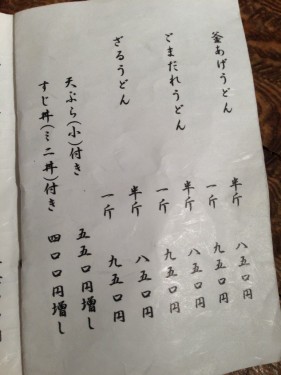 釜あげうどん
半斤 八五〇円
一斤 九五〇円
ごまだれうどん
半斤 八五〇円
一斤 九五〇円
ざるうどん
半斤 八五〇円
一斤 九五〇円
天ぷら(小)付き 五五〇円増し
すじ丼(ミニ丼)付き 四〇〇円増し